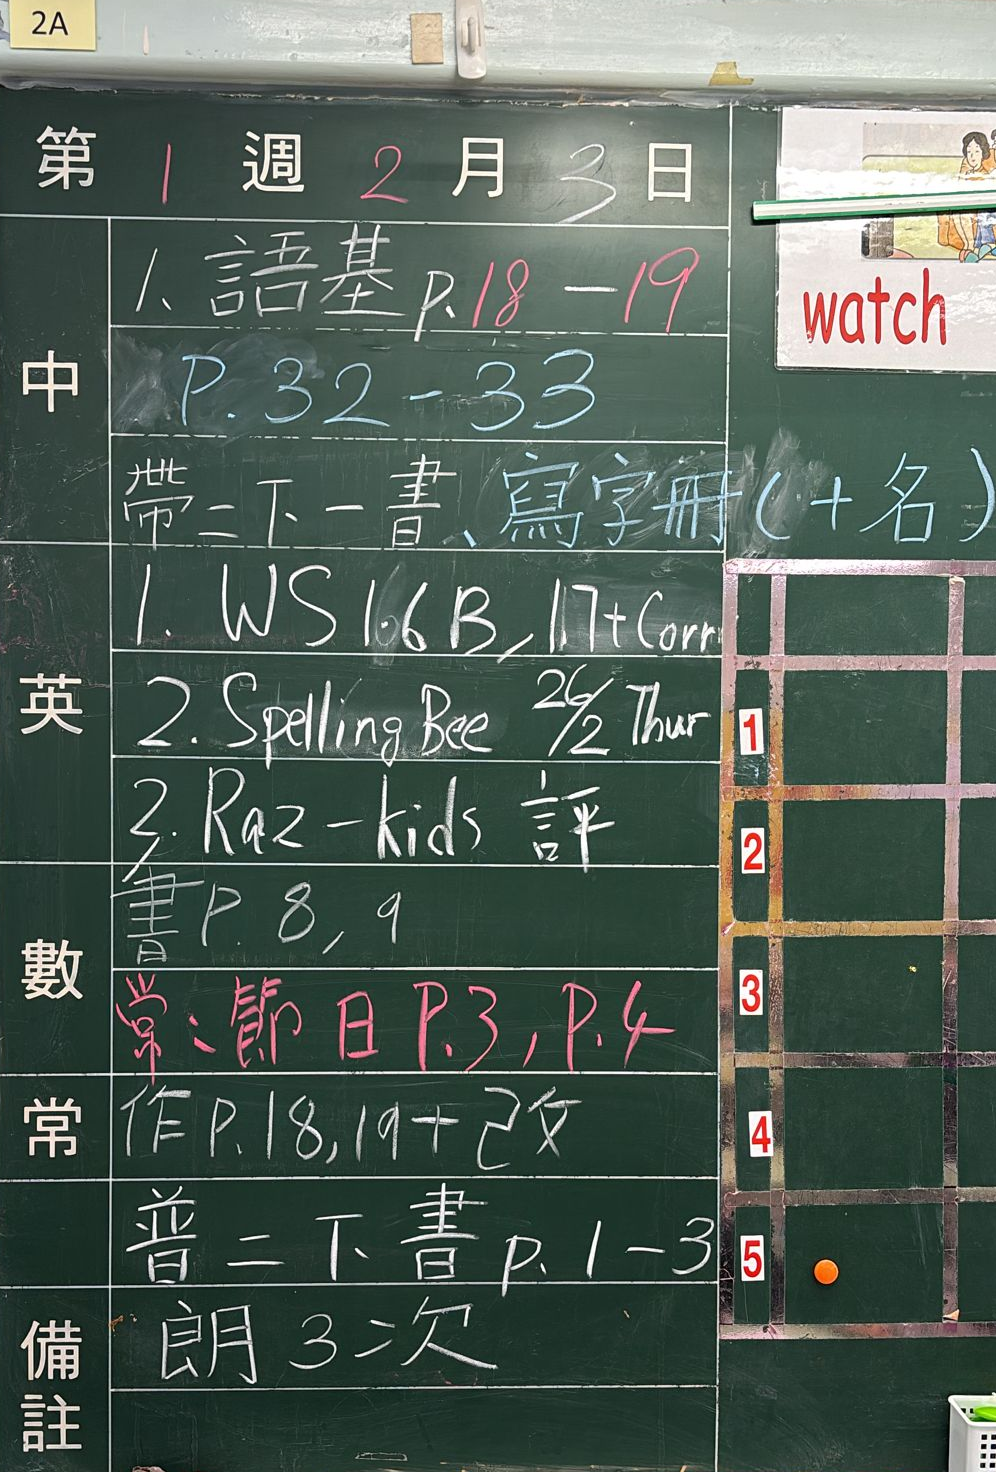 2A
第 1 週 2 月 3 日
watch
中
1. 語基 p.18-19
P.32-33
帶二下一書、寫字冊(+名)
英
1. WS 16B, 17+Corr
2. Spelling Bee 26/2 Thur
3. Raz-kids 評
數
書P.8,9
常:節日P.3,P.4
常
作P.18,19+改
普二下書p.1-3
備註
朗3次
1
2
3
4
5